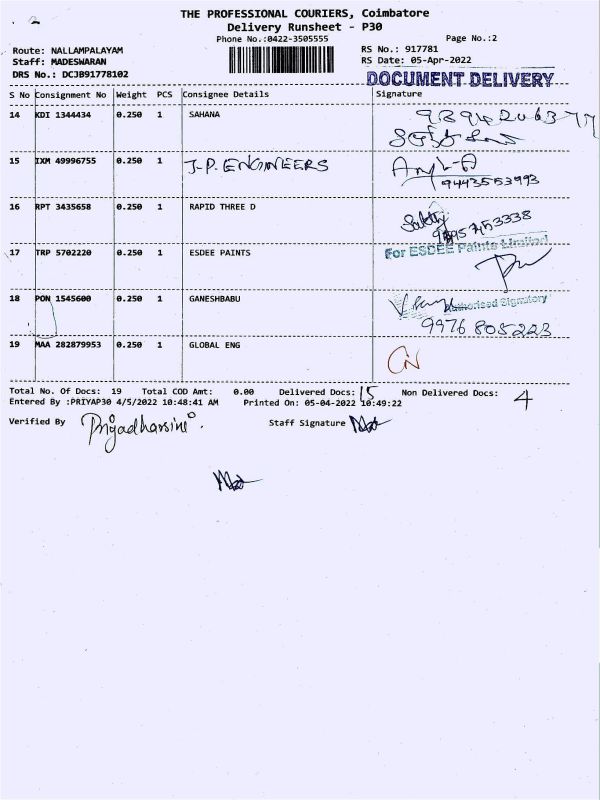 2
THE PROFESSIONAL COURIERS, Coimbatore
Delivery Runsheet - P30
Phone No.:0422-3505555
Page No.:2
Route: NALLAMPALAYAM
RS No.: 917781
Staff: MADESWARAN
RS Date: 05-Apr-2022
DRS No.: DCJB91778102
DOCUMENT DELIVERY
S No Consignment No Weight PCS Consignee Details Signature
14 KDI 1344434 0.250 1 SAHANA
15 IXM 49996755 0.250 1 J-P. ENGINEERS
9443553993
16 RPT 3435658 0.250 1 RAPID THREE D
17 TRP 5702220 0.250 1 ESDEE PAINTS For ESDEE Paints Limited
18 PON 1545600 0.250 1 GANESHBABU Authorised Signatory
9976 805223
19 MAA 282879953 0.250 1 GLOBAL ENG CN
Total No. Of Docs: 19 Total COD Amt: 0.00 Delivered Docs: 15 Non Delivered Docs: 4
Entered By :PRIYAP30 4/5/2022 10:48:41 AM Printed On: 05-04-2022 10:49:22
Verified By Priyadharsini. Staff Signature